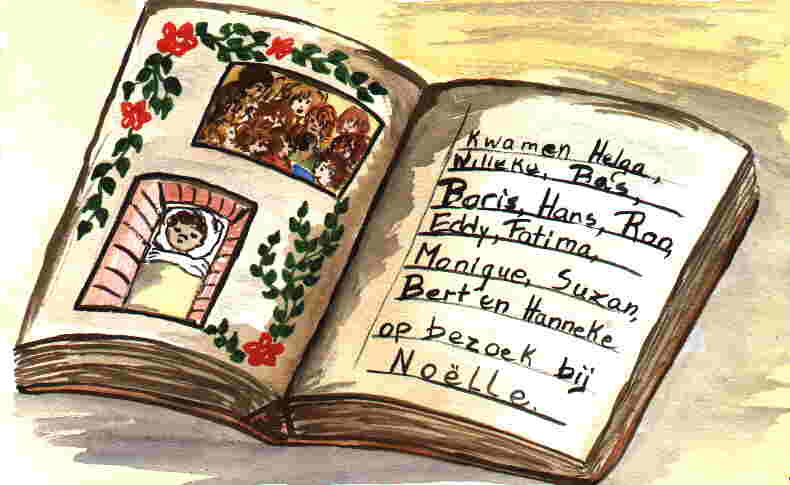 Kwamen Helga,
Willeke, Bas,
Boris, Hans, Roo,
Eddy, Fatima,
Monique, Suzan,
Bert en Hanneke
op bezoek bij
Noëlle.